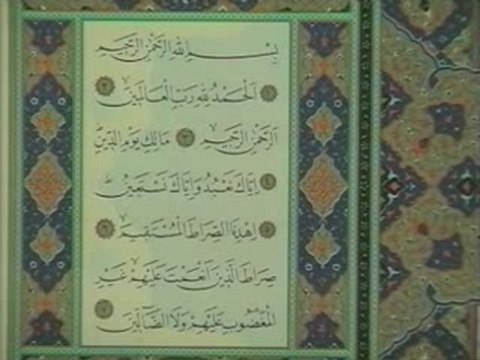 بِسْمِ اللهِ الرَّحْمٰنِ الرَّحِيمِ
١ اَلْحَمْدُ لِلّٰهِ رَبِّ الْعَالَمِينَ ٢
اَلرَّحْمٰنِ الرَّحِيمِ ٣ مَالِكِ يَوْمِ الدِّينِ
٤ اِيَّاكَ نَعْبُدُ وَاِيَّاكَ نَسْتَعِينُ
٥ اِهْدِنَا الصِّرَاطَ الْمُسْتَقِيمَ ٦
صِرَاطَ الَّذِينَ اَنْعَمْتَ عَلَيْهِمْ غَيْرِ
الْمَغْضُوبِ عَلَيْهِمْ وَلَا الضَّالِّينَ ٧